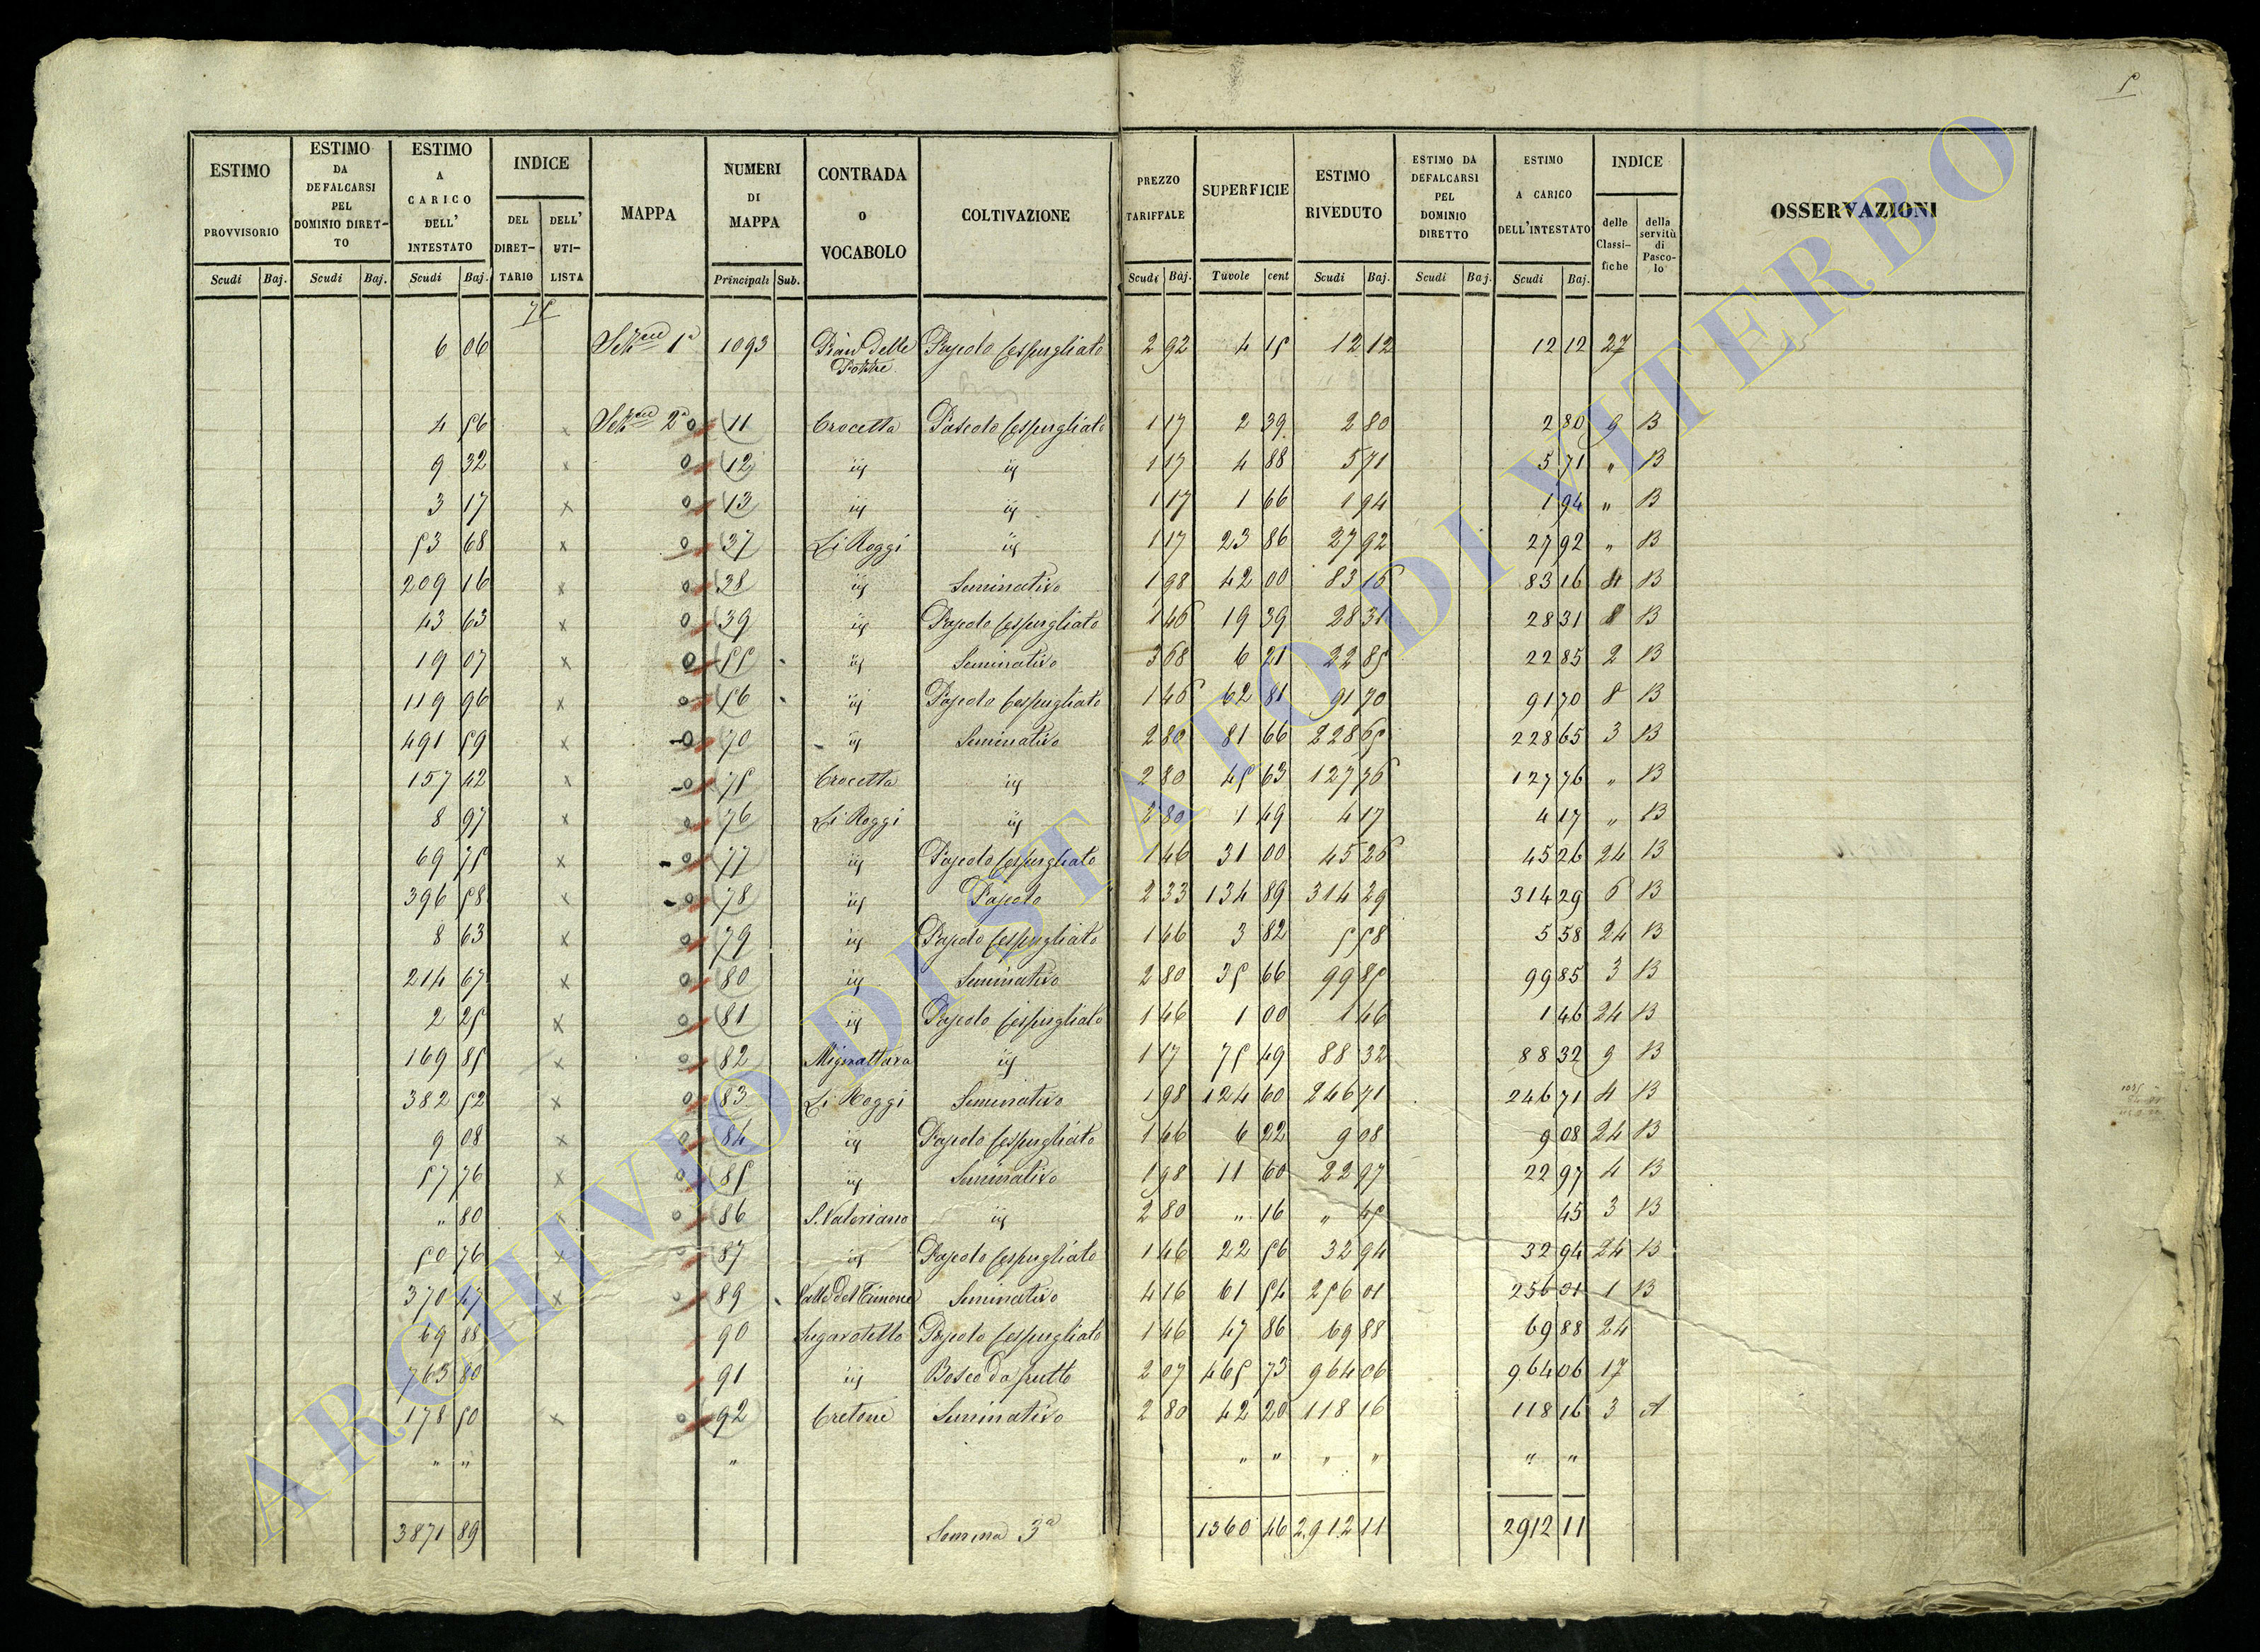 5
ESTIMO PROVVISORIO Scudi Baj. | ESTIMO DA DEFALCARSI PEL DOMINIO DIRETTO Scudi Baj. | ESTIMO A CARICO DELL' INTESTATO Scudi Baj. | INDICE DEL DIRETTARIO DELL' UTILISTA | MAPPA | NUMERI DI MAPPA Principali Sub. | CONTRADA o VOCABOLO | COLTIVAZIONE | PREZZO TARIFFALE Scudi Baj. | SUPERFICIE Tavole cent | ESTIMO RIVEDUTO Scudi Baj. | ESTIMO DA DEFALCARSI PEL DOMINIO DIRETTO Scudi Baj. | ESTIMO A CARICO DELL'INTESTATO Scudi Baj. | INDICE delle Classifiche della servitù di Pascolo | OSSERVAZIONI
75
6 06 Sezne 1a 1093 Pian delle Forme Pascolo Cespugliato 2 92 4 15 12 12 12 12 27
4 56 x Sezne 2a 0 11 Crocetta Pascolo Cespugliato 1 17 2 39 2 80 2 80 9 B
9 32 x 0 12 id id 1 17 4 88 5 71 5 71 " B
3 17 x 0 13 id id 1 17 1 66 1 94 1 94 " B
53 68 x 0 37 Li Roggi id 1 17 23 86 27 92 27 92 " B
209 16 x 0 38 id Seminativo 1 98 42 00 83 16 83 16 4 B
43 63 x 0 39 id Pascolo Cespugliato 1 46 19 39 28 31 28 31 8 B
19 07 x 0 55 id Seminativo 3 68 6 21 22 85 22 85 2 B
119 96 x 0 56 id Pascolo Cespugliato 1 46 62 81 91 70 91 70 8 B
491 59 x 0 70 id Seminativo 2 80 81 66 228 65 228 65 3 B
157 42 x 0 75 Crocetta id 2 80 45 63 127 76 127 76 " B
8 97 x 0 76 Li Roggi id 2 80 1 49 4 17 4 17 " B
69 75 x 0 77 id Pascolo Cespugliato 1 46 31 00 45 26 45 26 24 B
396 58 x 0 78 id Pascolo 2 33 134 89 314 29 314 29 6 B
8 63 x 0 79 id Pascolo Cespugliato 1 46 3 82 5 58 5 58 24 B
214 67 x 0 80 id Seminativo 2 80 35 66 99 85 99 85 3 B
2 25 x 0 81 id Pascolo Cespugliato 1 46 1 00 1 46 1 46 24 B
169 85 x 0 82 Mignattara id 1 17 75 49 88 32 88 32 9 B
382 52 x 0 83 Li Roggi Seminativo 1 98 124 60 246 71 246 71 4 B
9 08 x 0 84 id Pascolo Cespugliato 1 46 6 22 9 08 9 08 24 B
57 76 x 0 85 id Seminativo 1 98 11 60 22 97 22 97 4 B
" 80 x 0 86 S. Valeriano id 2 80 " 16 " 45 45 3 B
50 76 x 0 87 id Pascolo Cespugliato 1 46 22 56 32 94 32 94 24 B
370 47 x 0 89 Valle del Timone Seminativo 4 16 61 54 256 01 256 01 1 B
69 88 90 Sugaretello Pascolo Cespugliato 1 46 47 86 69 88 69 88 24
763 80 91 id Bosco da frutto 2 07 465 73 964 06 964 06 17
178 50 x 0 92 Cretone Seminativo 2 80 42 20 118 16 118 16 3 A
" " " " " " " " "
3871 89 Somma 3a 1360 46 2912 11 2912 11
ARCHIVIO DI STATO DI VITERBO